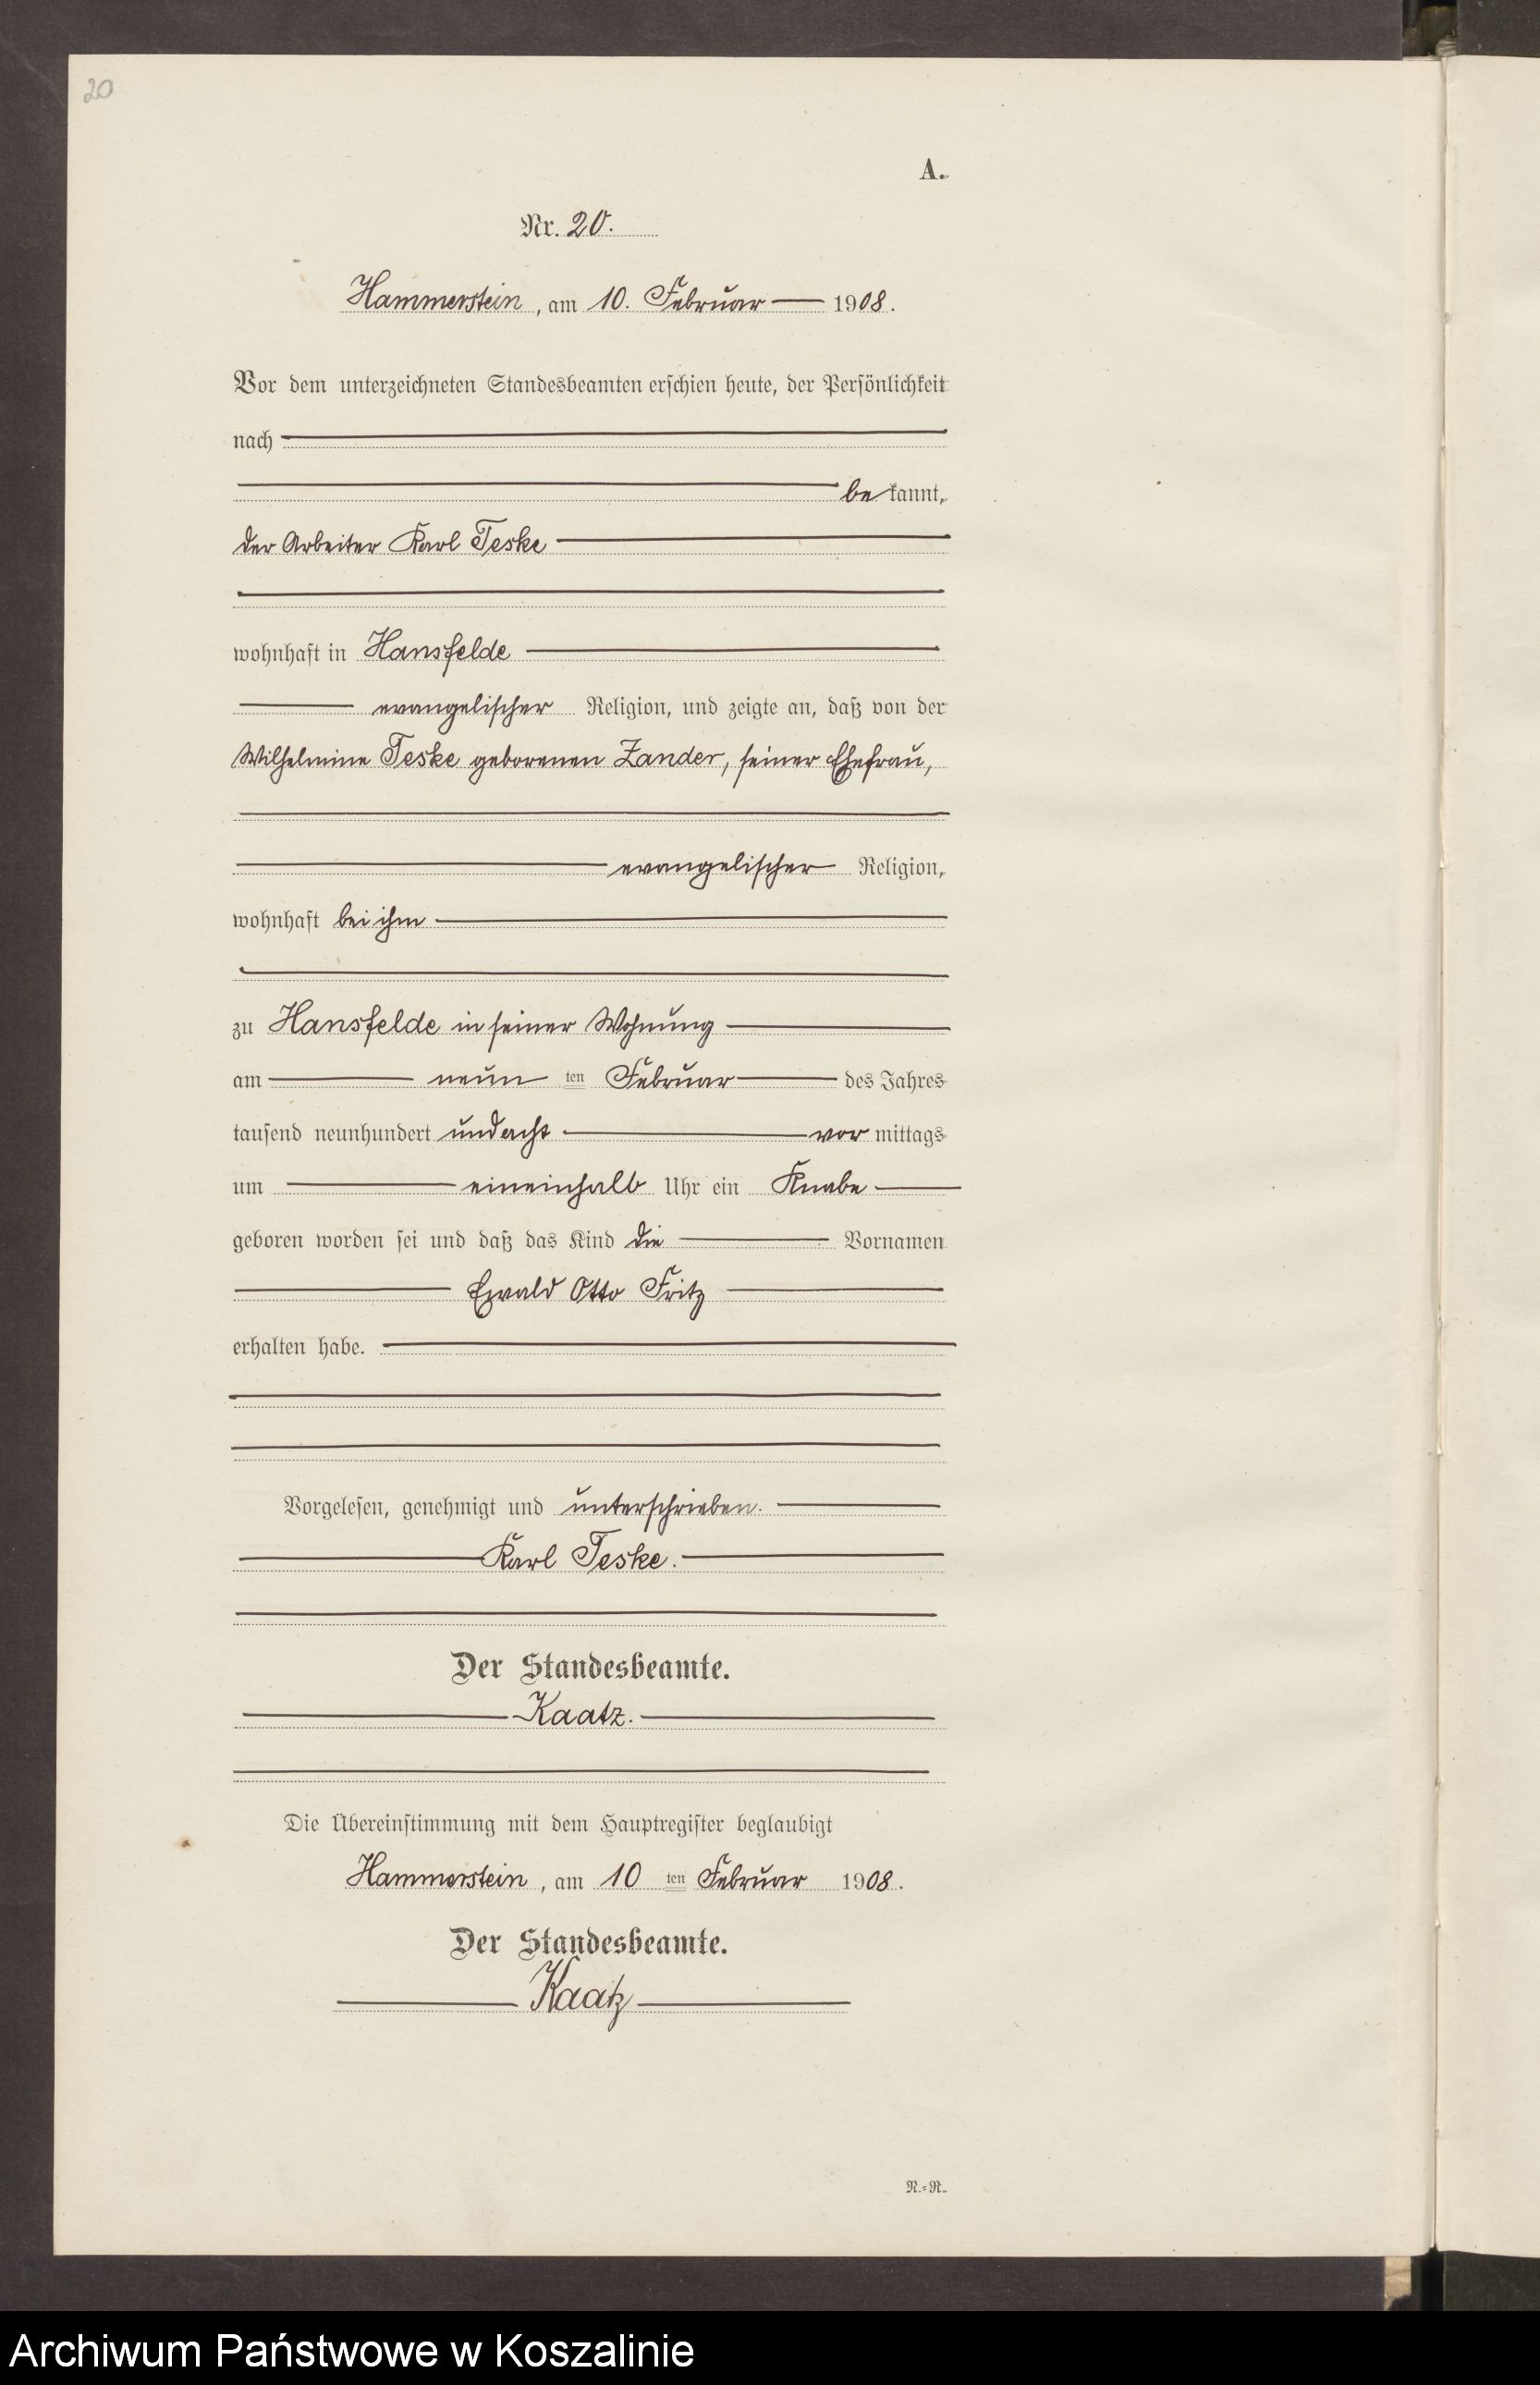 20
A.
Nr. 20.
Hammerstein, am 10. Februar 1908.
Vor dem unterzeichneten Standesbeamten erschien heute, der Persönlichkeit
nach
bekannt,
der Arbeiter Karl Teske
wohnhaft in Hansfelde
evangelischer Religion, und zeigte an, daß von der
Wilhelmine Teske geborenen Zander, seiner Ehefrau,
evangelischer Religion,
wohnhaft bei ihm
zu Hansfelde in seiner Wohnung
am neun ten Februar des Jahres
tausend neunhundert undacht vormittags
um eineinhalb Uhr ein Knabe
geboren worden sei und daß das Kind die Vornamen
Ewald Otto Fritz
erhalten habe.
Vorgelesen, genehmigt und unterschrieben.
Karl Teske.
Der Standesbeamte.
Kaatz.
Die Übereinstimmung mit dem Hauptregister beglaubigt
Hammerstein, am 10 ten Februar 1908.
Der Standesbeamte.
Kaatz
N.=R.
Archiwum Państwowe w Koszalinie